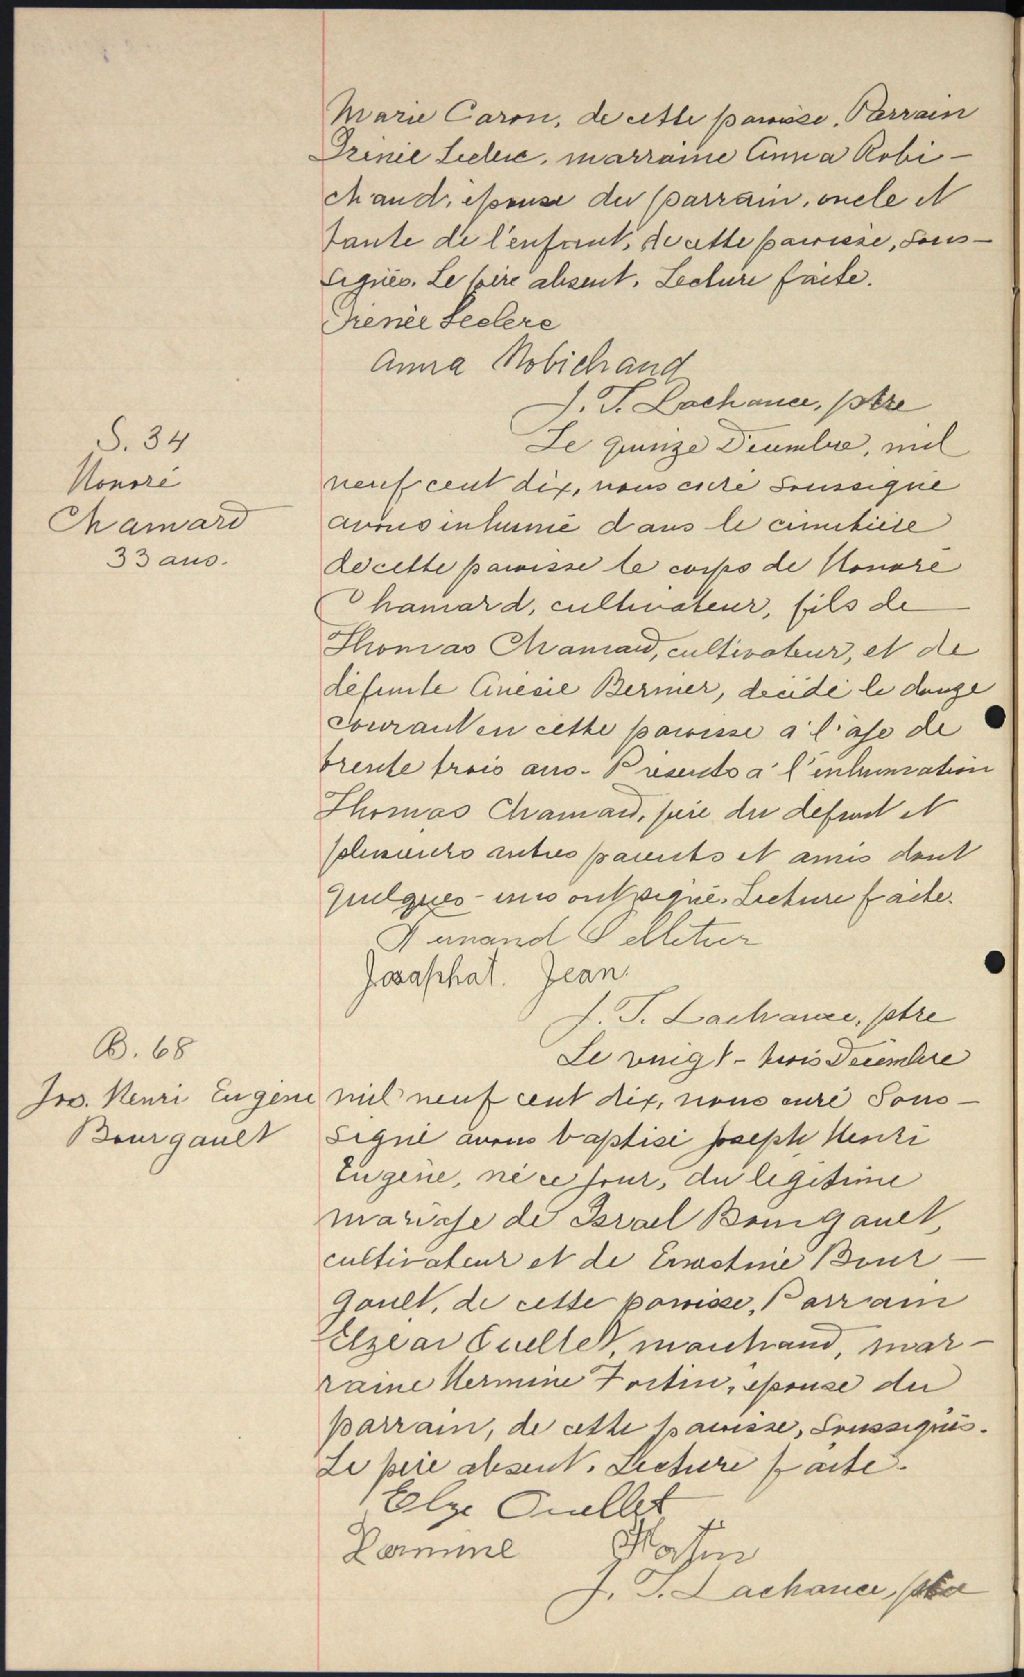 Marie Caron, de cette paroisse. Parrain
Irénée Leclerc, marraine Anna Robi-
chaud, épouse du parrain, oncle et
tante de l'enfant, de cette paroisse, sous-
signés. Le père absent. Lecture faite.
Irénée Leclerc
Anna Robichaud
J. T. Lachance, ptre
S. 34
Honoré
Chamard
33 ans.
Le quinze Décembre, mil
neuf cent dix, nous curé soussigné
avons inhumé dans le cimetière
de cette paroisse le corps de Honoré
Chamard, cultivateur, fils de
Thomas Chamard, cultivateur, et de
défunte Anésie Bernier, décédé le douze
courant en cette paroisse à l'âge de
trente trois ans. Présents à l'inhumation
Thomas Chamard, père du défunt et
plusieurs autres parents et amis dont
quelques-uns ont signé. Lecture faite.
Fernand Pelletier
Josaphat. Jean
J. T. Lachance, ptre
B. 68
Jos. Henri Eugène
Bourgault
Le vingt-trois Décembre
mil neuf cent dix, nous curé sous-
signé avons baptisé Joseph Henri
Eugène, né ce jour, du légitime
mariage de Israel Bourgault,
cultivateur et de Ernestine Bour-
gault, de cette paroisse, Parrain
Elzéar Ouellet, marchand, mar-
raine Hermine Fortin, épouse du
parrain, de cette paroisse, soussignés.
Le père absent. Lecture faite.
Elze Ouellet
Hermine Fortin
J. T. Lachance, ptre